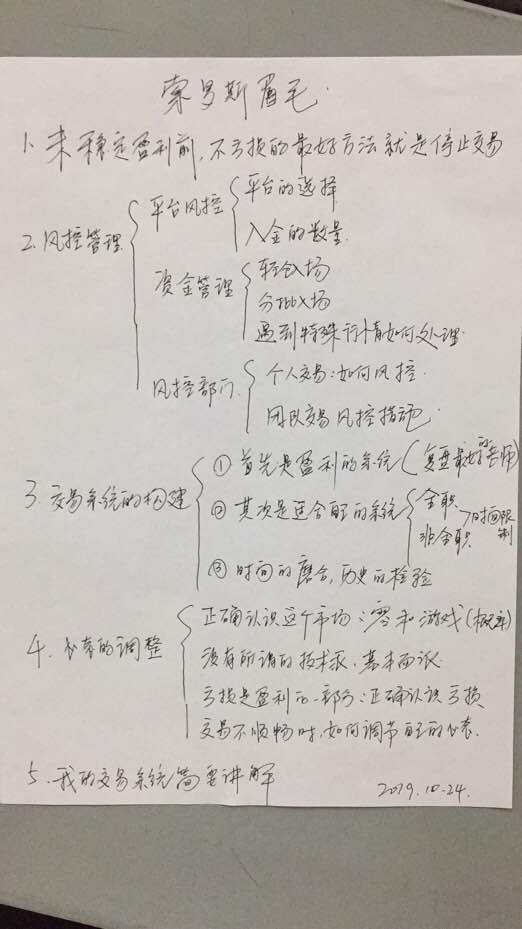 索罗斯眉毛
1. 未稳定盈利前,不亏损的最好方法就是停止交易
2. 风控管理
平台风控
平台的选择
入金的数量
资金管理
轻仓入场
分批入场
遇到特殊行情如何处理.
风控部门.
个人交易:如何风控.
团队交易风控措施
3. 交易系统的构建
① 首先是盈利的系统(复盘最好的老师)
② 其次是适合自己的系统
全职
非全职
时间限制
③ 时间的磨合,历史的检验
4. 心态的调整
正确认识这个市场:零和游戏(概率)
没有所谓的技术派、基本面派
亏损是盈利的一部分:正确认识亏损
交易不顺畅时,如何调节自己的心态.
5. 我的交易系统简要讲解
2019.10.24.